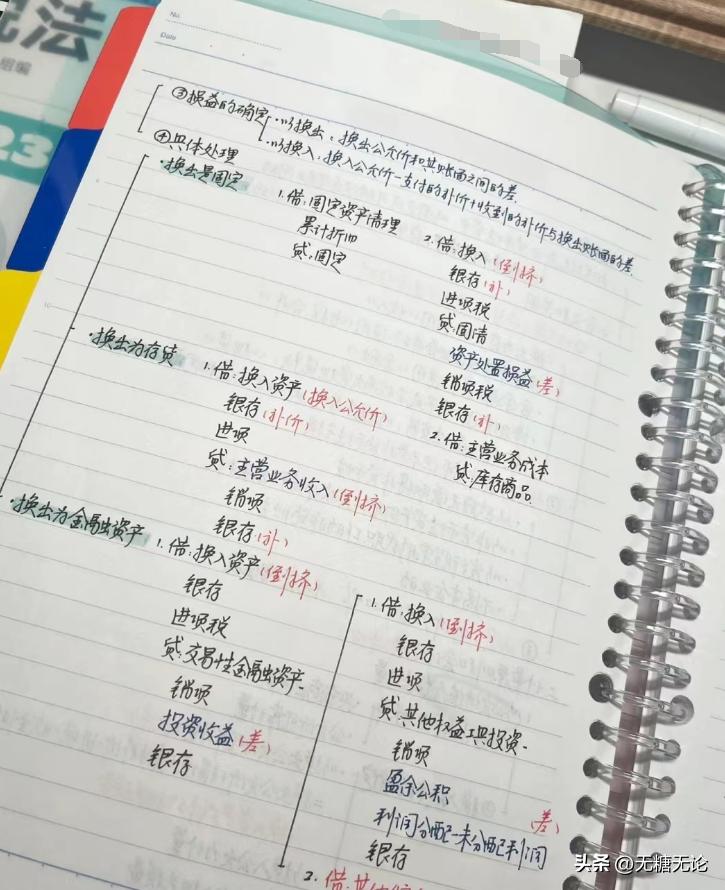 税法
组编
23
No.
Date
③损益的确定
·以换出：换出公允价和其账面之间的差.
·以换入：换入公允价-支付的补价+收到的补价与换出账面的差.
④具体处理
·换出是固定
1.借:固定资产清理
累计折旧
贷:固定
2.借:换入(倒挤)
银存(补)
进项税
贷:固清
资产处置损益(差)
销项税
银存(补)
·换出为存货
1.借:换入资产(换入公允价)
银存(补价)
进项
贷:主营业务收入(倒挤)
销项
银存(补)
2.借:主营业务成本
贷:库存商品
·换出为金融资产
1.借:换入资产(倒挤)
银存
进项税
贷:交易性金融资产-
销项
投资收益(差)
银存
1.借:换入(倒挤)
银存
进项
贷:其他权益工具投资-
销项
盈余公积
利润分配-未分配利润(差)
银存
2.借:其他
头条 @无糖无论